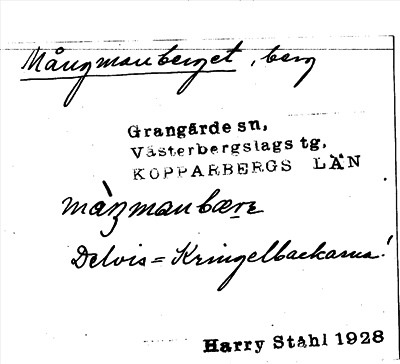 Mångmanberget, berg
Grangärde sn,
Västerbergslags tg,
KOPPARBERGS LÄN
Delvis = Kringelbackarna!
Harry Ståhl 1928